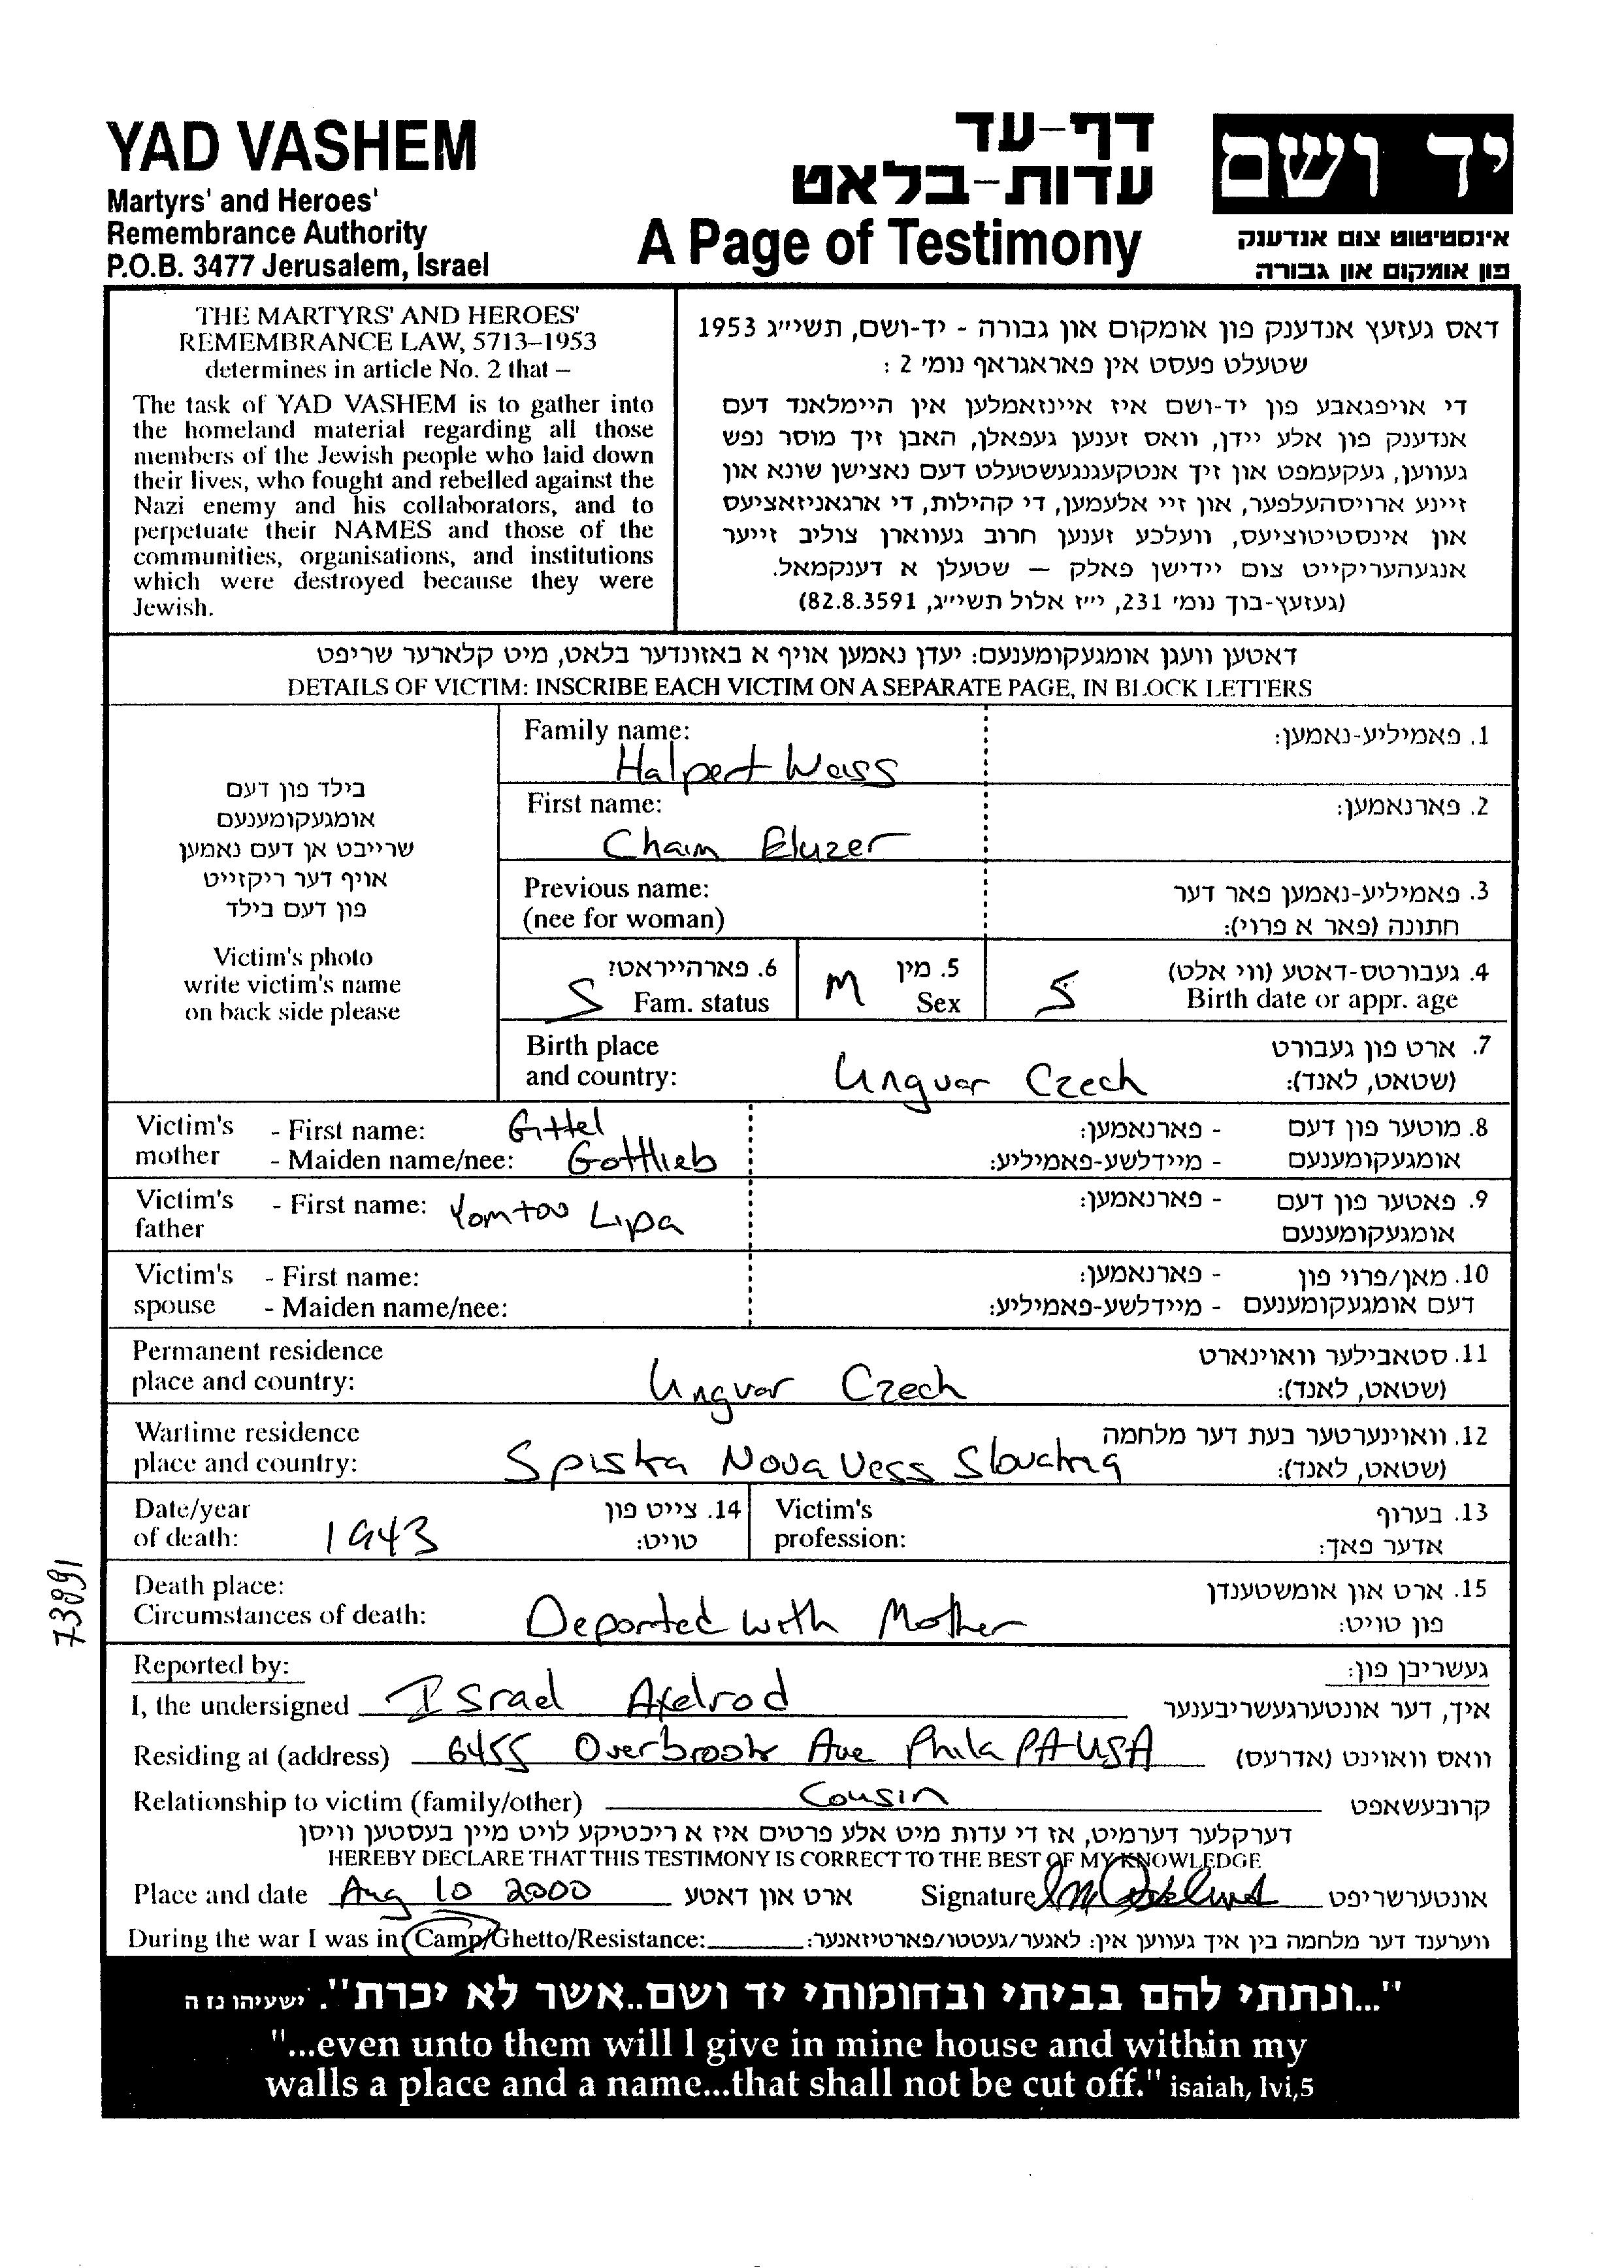 YAD VASHEM
Martyrs' and Heroes'
Remembrance Authority
P.O.B. 3477 Jerusalem, Israel
דף-עד
עדות-בלאט
A Page of Testimony
יד ושם
אינסטיטוט צום אנדענק
פון אומקום און גבורה
THE MARTYRS' AND HEROES'
REMEMBRANCE LAW, 5713–1953
determines in article No. 2 that –
The task of YAD VASHEM is to gather into
the homeland material regarding all those
members of the Jewish people who laid down
their lives, who fought and rebelled against the
Nazi enemy and his collaborators, and to
perpetuate their NAMES and those of the
communities, organisations, and institutions
which were destroyed because they were
Jewish.
דאס געזעץ אנדענק פון אומקום און גבורה - יד-ושם, תשי״ג 1953
שטעלט פעסט אין פאראגראף נומ׳ 2 :
די אויפגאבע פון יד-ושם איז איינזאמלען אין היימלאנד דעם
אנדענק פון אלע יידן, וואס זענען געפאלן, האבן זיך מוסר נפש
געווען, געקעמפט און זיך אנטקעגנגעשטעלט דעם נאצישן שונא און
זיינע ארויסהעלפער, און זיי אלעמען, די קהילות, די ארגאניזאציעס
און אינסטיטוציעס, וועלכע זענען חרוב געווארן צוליב זייער
אנגעהעריקייט צום יידישן פאלק — שטעלן א דענקמאל.
(געזעץ-בוך נומ׳ 231, י״ז אלול תשי״ג, 82.8.3591)
דאטען וועגן אומגעקומענעם: יעדן נאמען אויף א באזונדער בלאט, מיט קלארער שריפט
DETAILS OF VICTIM: INSCRIBE EACH VICTIM ON A SEPARATE PAGE, IN BLOCK LETTERS
בילד פון דעם
אומגעקומענעם
שרייבט אן דעם נאמען
אויף דער ריקזייט
פון דעם בילד
Victim's photo
write victim's name
on back side please
Family name: 1. פאמיליע-נאמען:
Halpert Weiss
First name: 2. פארנאמען:
Chaim Eluzer
Previous name: 3. פאמיליע-נאמען פאר דער
(nee for woman) חתונה (פאר א פרוי):
6. פארהייראט? 5. מין 4. געבורטס-דאטע (ווי אלט)
S Fam. status M Sex 5 Birth date or appr. age
Birth place 7. ארט פון געבורט
and country: Unguar Czech (שטאט, לאנד):
Victim's - First name: Gittel - פארנאמען: 8. מוטער פון דעם
mother - Maiden name/nee: Gottlieb - מיידלשע-פאמיליע: אומגעקומענעם
Victim's - First name: Yomtov Lipa - פארנאמען: 9. פאטער פון דעם
father אומגעקומענעם
Victim's - First name: - פארנאמען: 10. מאן/פרוי פון
spouse - Maiden name/nee: - מיידלשע-פאמיליע: דעם אומגעקומענעם
Permanent residence 11. סטאבילער וואוינארט
place and country: Unguar Czech (שטאט, לאנד):
Wartime residence 12. וואוינערטער בעת דער מלחמה
place and country: Spiska Nova Vess Slovakia (שטאט, לאנד):
Date/year 14. צייט פון Victim's 13. בערוף
of death: 1943 טויט: profession: אדער פאך:
Death place: 15. ארט און אומשטענדן
Circumstances of death: Deported with Mother פון טויט:
73891
Reported by: געשריבן פון:
I, the undersigned Israel Axelrod איך, דער אונטערגעשריבענער
Residing at (address) 6455 Overbrook Ave Phila PA USA וואס וואוינט (אדרעס)
Relationship to victim (family/other) Cousin קרובהשאפט
דערקלער דערמיט, אז די עדות מיט אלע פרטים איז א ריכטיקע לויט מיין בעסטען וויסן
HEREBY DECLARE THAT THIS TESTIMONY IS CORRECT TO THE BEST OF MY KNOWLEDGE
Place and date Aug 10 2000 ארט און דאטע Signature אונטערשריפט
During the war I was in Camp/Ghetto/Resistance: ווערענד דער מלחמה בין איך געווען אין: לאגער/געטטו/פארטיזאנער:
"...ונתתי להם בביתי ובחומותי יד ושם..אשר לא יכרת". ישעיהו נו ה
"...even unto them will I give in mine house and within my
walls a place and a name...that shall not be cut off." isaiah, lvi,5